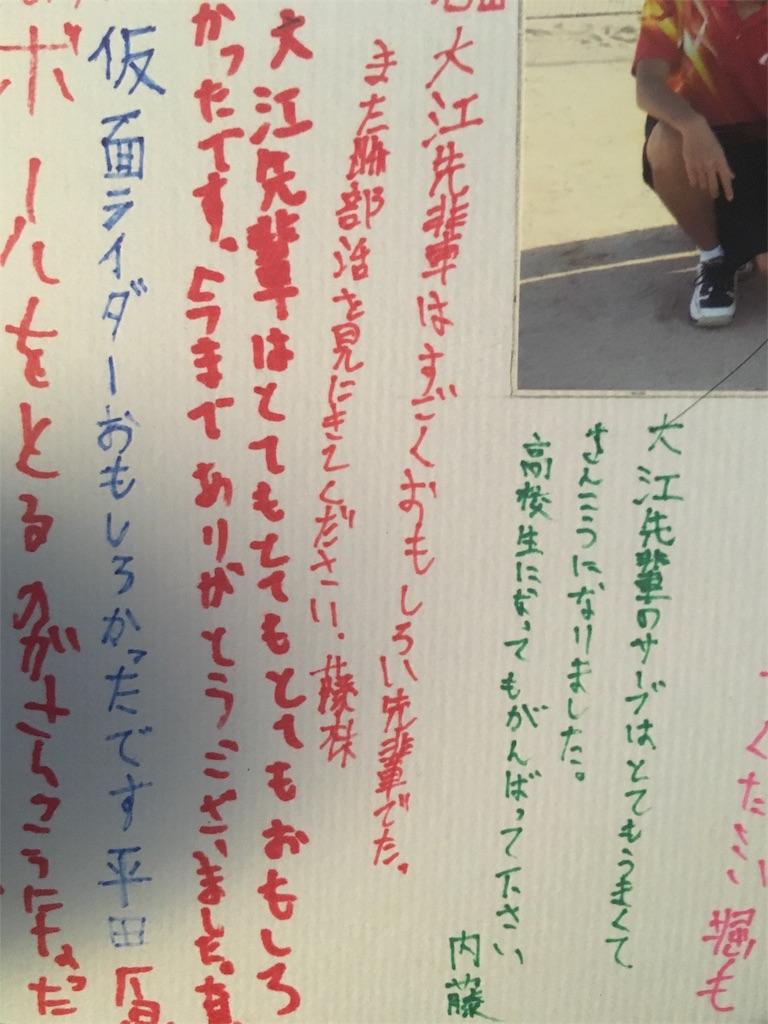 ください 堀も
大江先輩のサーブはとてもうまくて
さんこうになりました。
高校生になってもがんばって下さい
内藤
大江先輩はすごくおもしろい先輩でた。
また 部活を見にきてください.
大江先輩はとてもとてもとてもおもしろ
かったです。今までありがとうございました。
仮面ライダーおもしろかったです 平田
ボールをとるのがさんこうになった